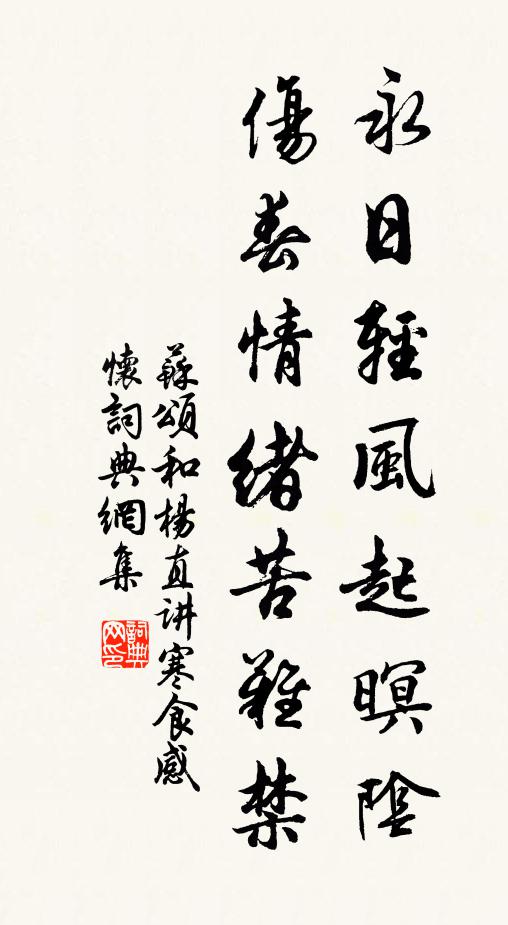 永日輕風起暝陰
傷春情緒苦難禁
蘇頌和楊直讲寒食感
懷詞典網集
詞典网印